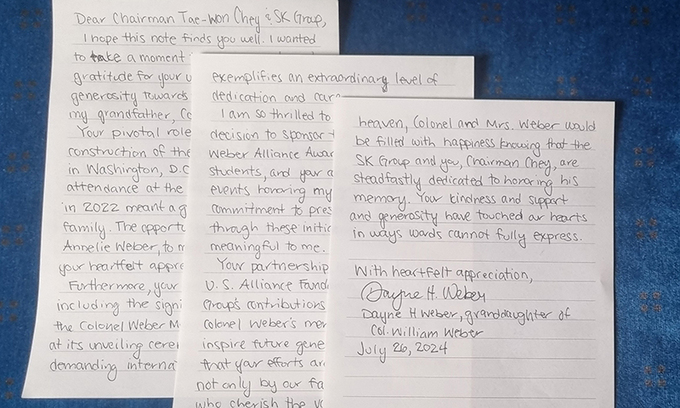 Dear Chairman Tae-Won Chey & SK Group,
I hope this note finds you well. I wanted
to take a moment
gratitude for your u
generosity towards
my grandfather, Co
Your pivotal role
construction of the
in Washington, D.C
attendance at the
in 2022 meant a g
family. The opportu
Annelie Weber, to m
your heartfelt appre
Furthermore, your
including the signi
the Colonel Weber M
at its unveiling cere
demanding interna
exemplifies an extraordinary level of
dedication and care
I am so thrilled to
decision to sponsor t
Weber Alliance Awar
students, and your a
events honoring my
commitment to pres
through these initia
meaningful to me.
Your partnership
U.S. Alliance Found
Group's contributions
Colonel Weber's mem
inspire future gene
that your efforts are
not only by our fa
who cherish the v
heaven, Colonel and Mrs. Weber would
be filled with happiness knowing that the
SK Group and you, Chairman Chey, are
steadfastly dedicated to honoring his
memory. Your kindness and support
and generosity have touched our hearts
in ways words cannot fully express.
With heartfelt appreciation,
Dayne H. Weber
Dayne H Weber, granddaughter of
Col. William Weber
July 26, 2024